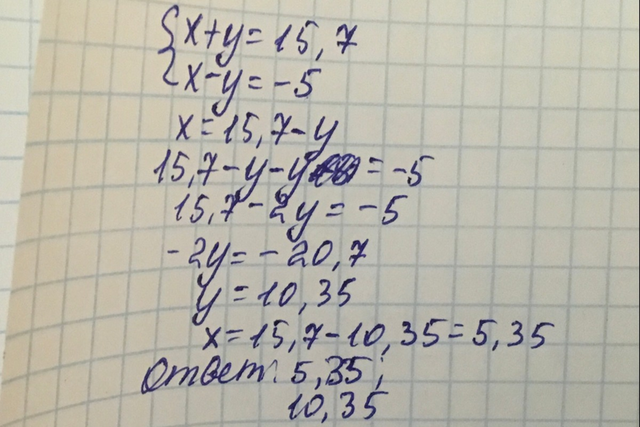 {x+y=15,7
x-y=-5
x=15,7-y
15,7-y-y=-5
15,7-2y=-5
-2y=-20,7
y=10,35
x=15,7-10,35=5,35
Ответ: 5,35;
10,35